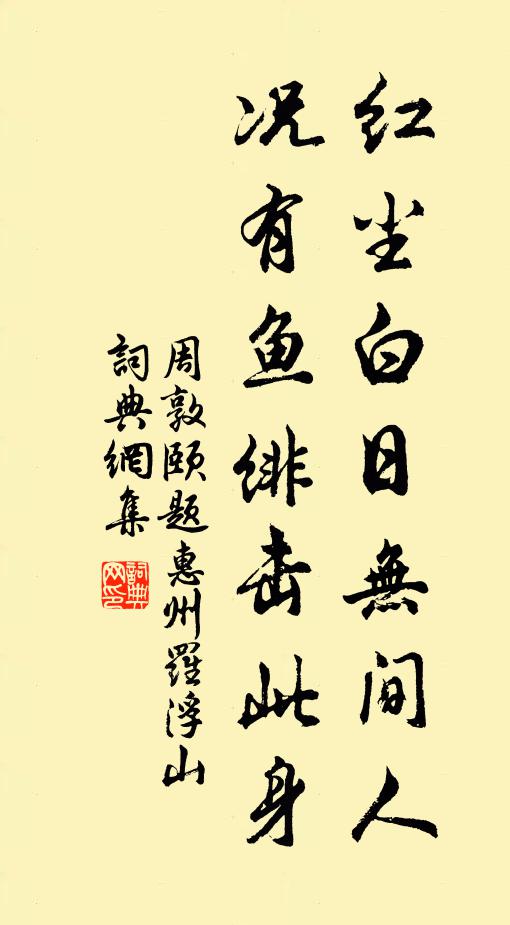 红尘白日無间人
况有鱼绯击此身
周敦颐题惠州羅浮山
詞典網集
詞典网印